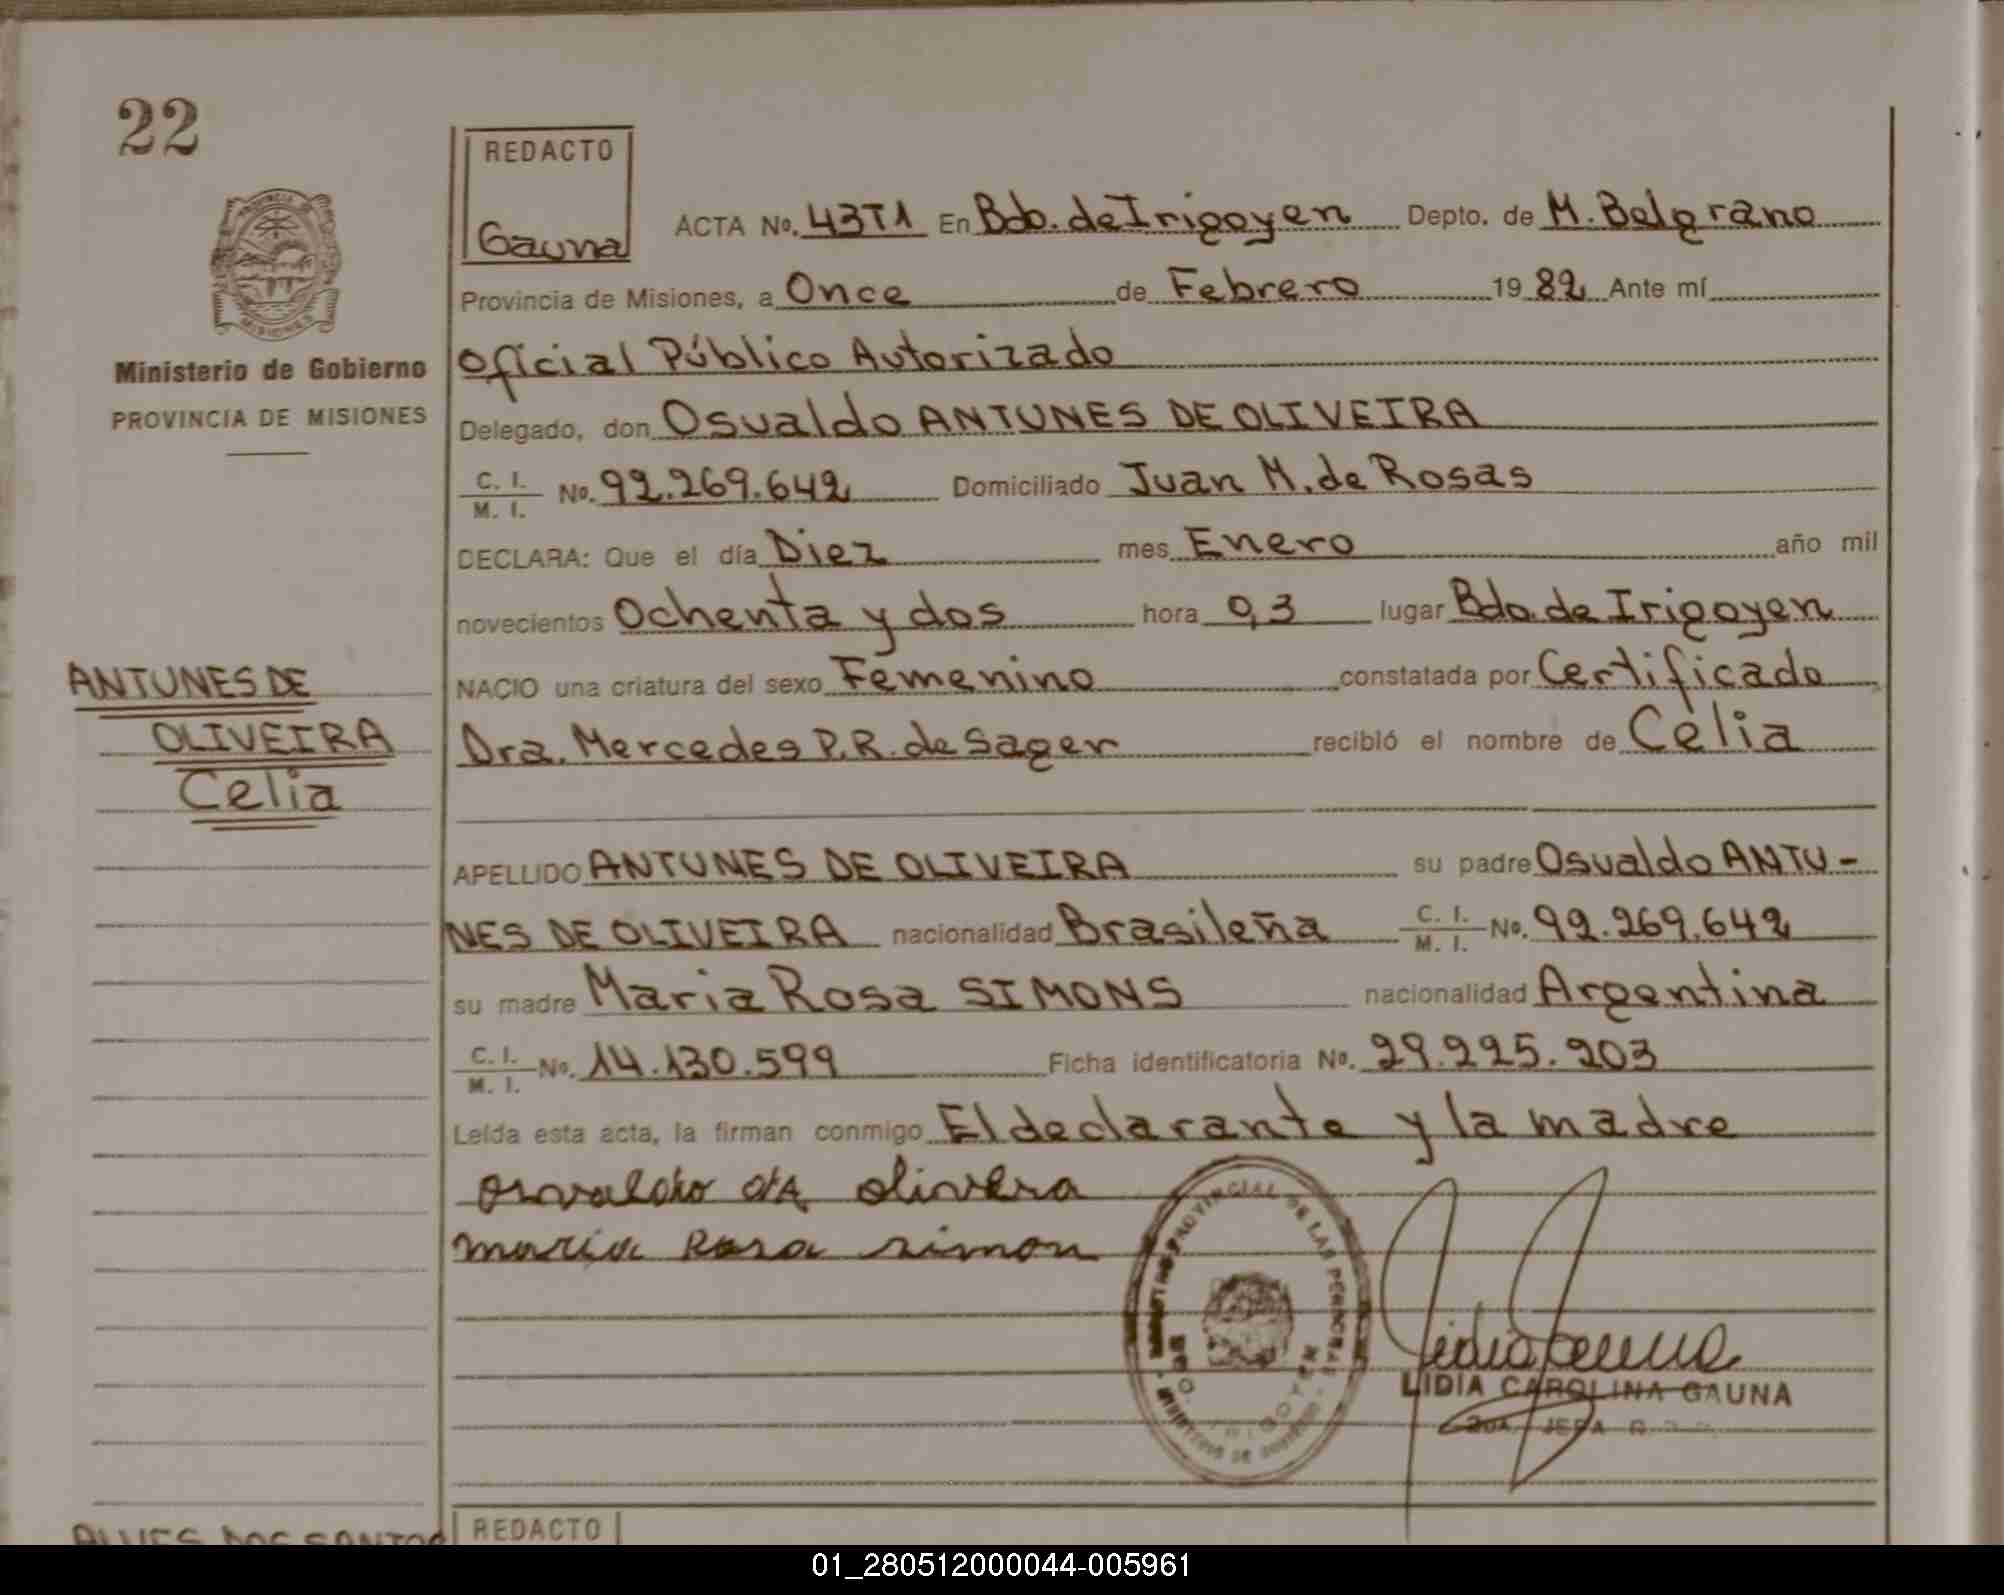 22
REDACTO
Gauna
ACTA No. 43T1 En Bdo. de Irigoyen Depto. de M. Belgrano
Provincia de Misiones, a Once de Febrero 1982 Ante mí
Oficial Público Autorizado
Ministerio de Gobierno
PROVINCIA DE MISIONES
Delegado, don Osvaldo ANTUNES DE OLIVEIRA
C. I.
M. I. No. 92.269.642 Domiciliado Juan M. de Rosas
DECLARA: Que el día Diez mes Enero año mil
novecientos Ochenta y dos hora 0,3 lugar Bdo. de Irigoyen
ANTUNES DE
OLIVEIRA
Celia
NACIO una criatura del sexo Femenino constatada por Certificado
Dra. Mercedes P.R. de Sager recibió el nombre de Celia
APELLIDO ANTUNES DE OLIVEIRA su padre Osvaldo ANTU-
NES DE OLIVEIRA nacionalidad Brasileña C. I. M. I. No. 92.269.642
su madre Maria Rosa SIMONS nacionalidad Argentina
C. I.
M. I. No. 14.130.599 Ficha identificatoria No. 29.225.203
Leída esta acta, la firman conmigo El declarante y la madre
osvaldo dA olivera
maria Rosa simon
PROVINCIAL DE LAS PERSONAS
LIDIA CAROLINA GAUNA
REDACTO
01_280512000044-005961